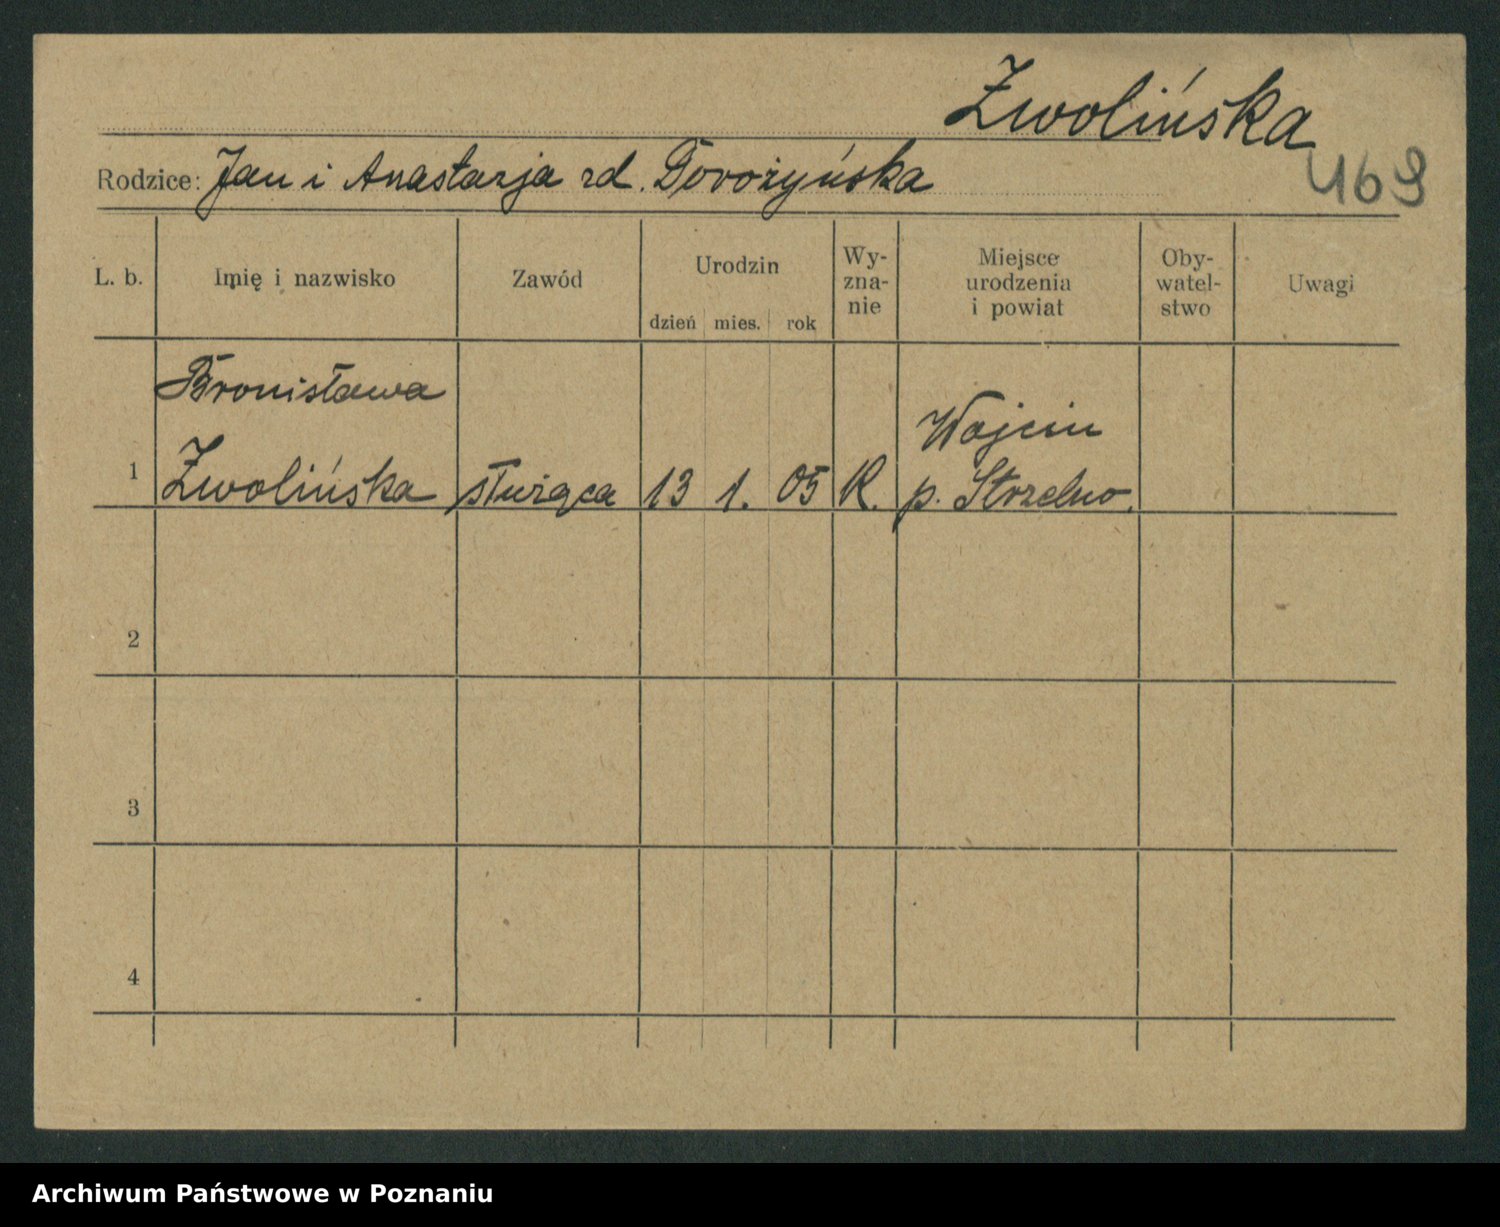 Zwolińska
469
Rodzice: Jan i Anastazja rd.
L. b. Imię i nazwisko Zawód Urodzin dzień mies. rok Wy-zna-nie Miejsce urodzenia i powiat Oby-watel-stwo Uwagi
Bronisława
Wojcin
1 Zwolińska służąca 13 1. 05 K. p. Strzelno.
2
3
4
Archiwum Państwowe w Poznaniu